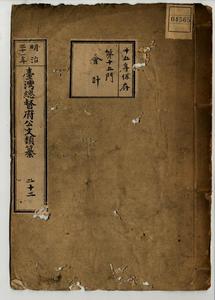 04565
十五年保存
第十二門
會計
明治
三十一年
臺灣總督府公文類纂
二十二